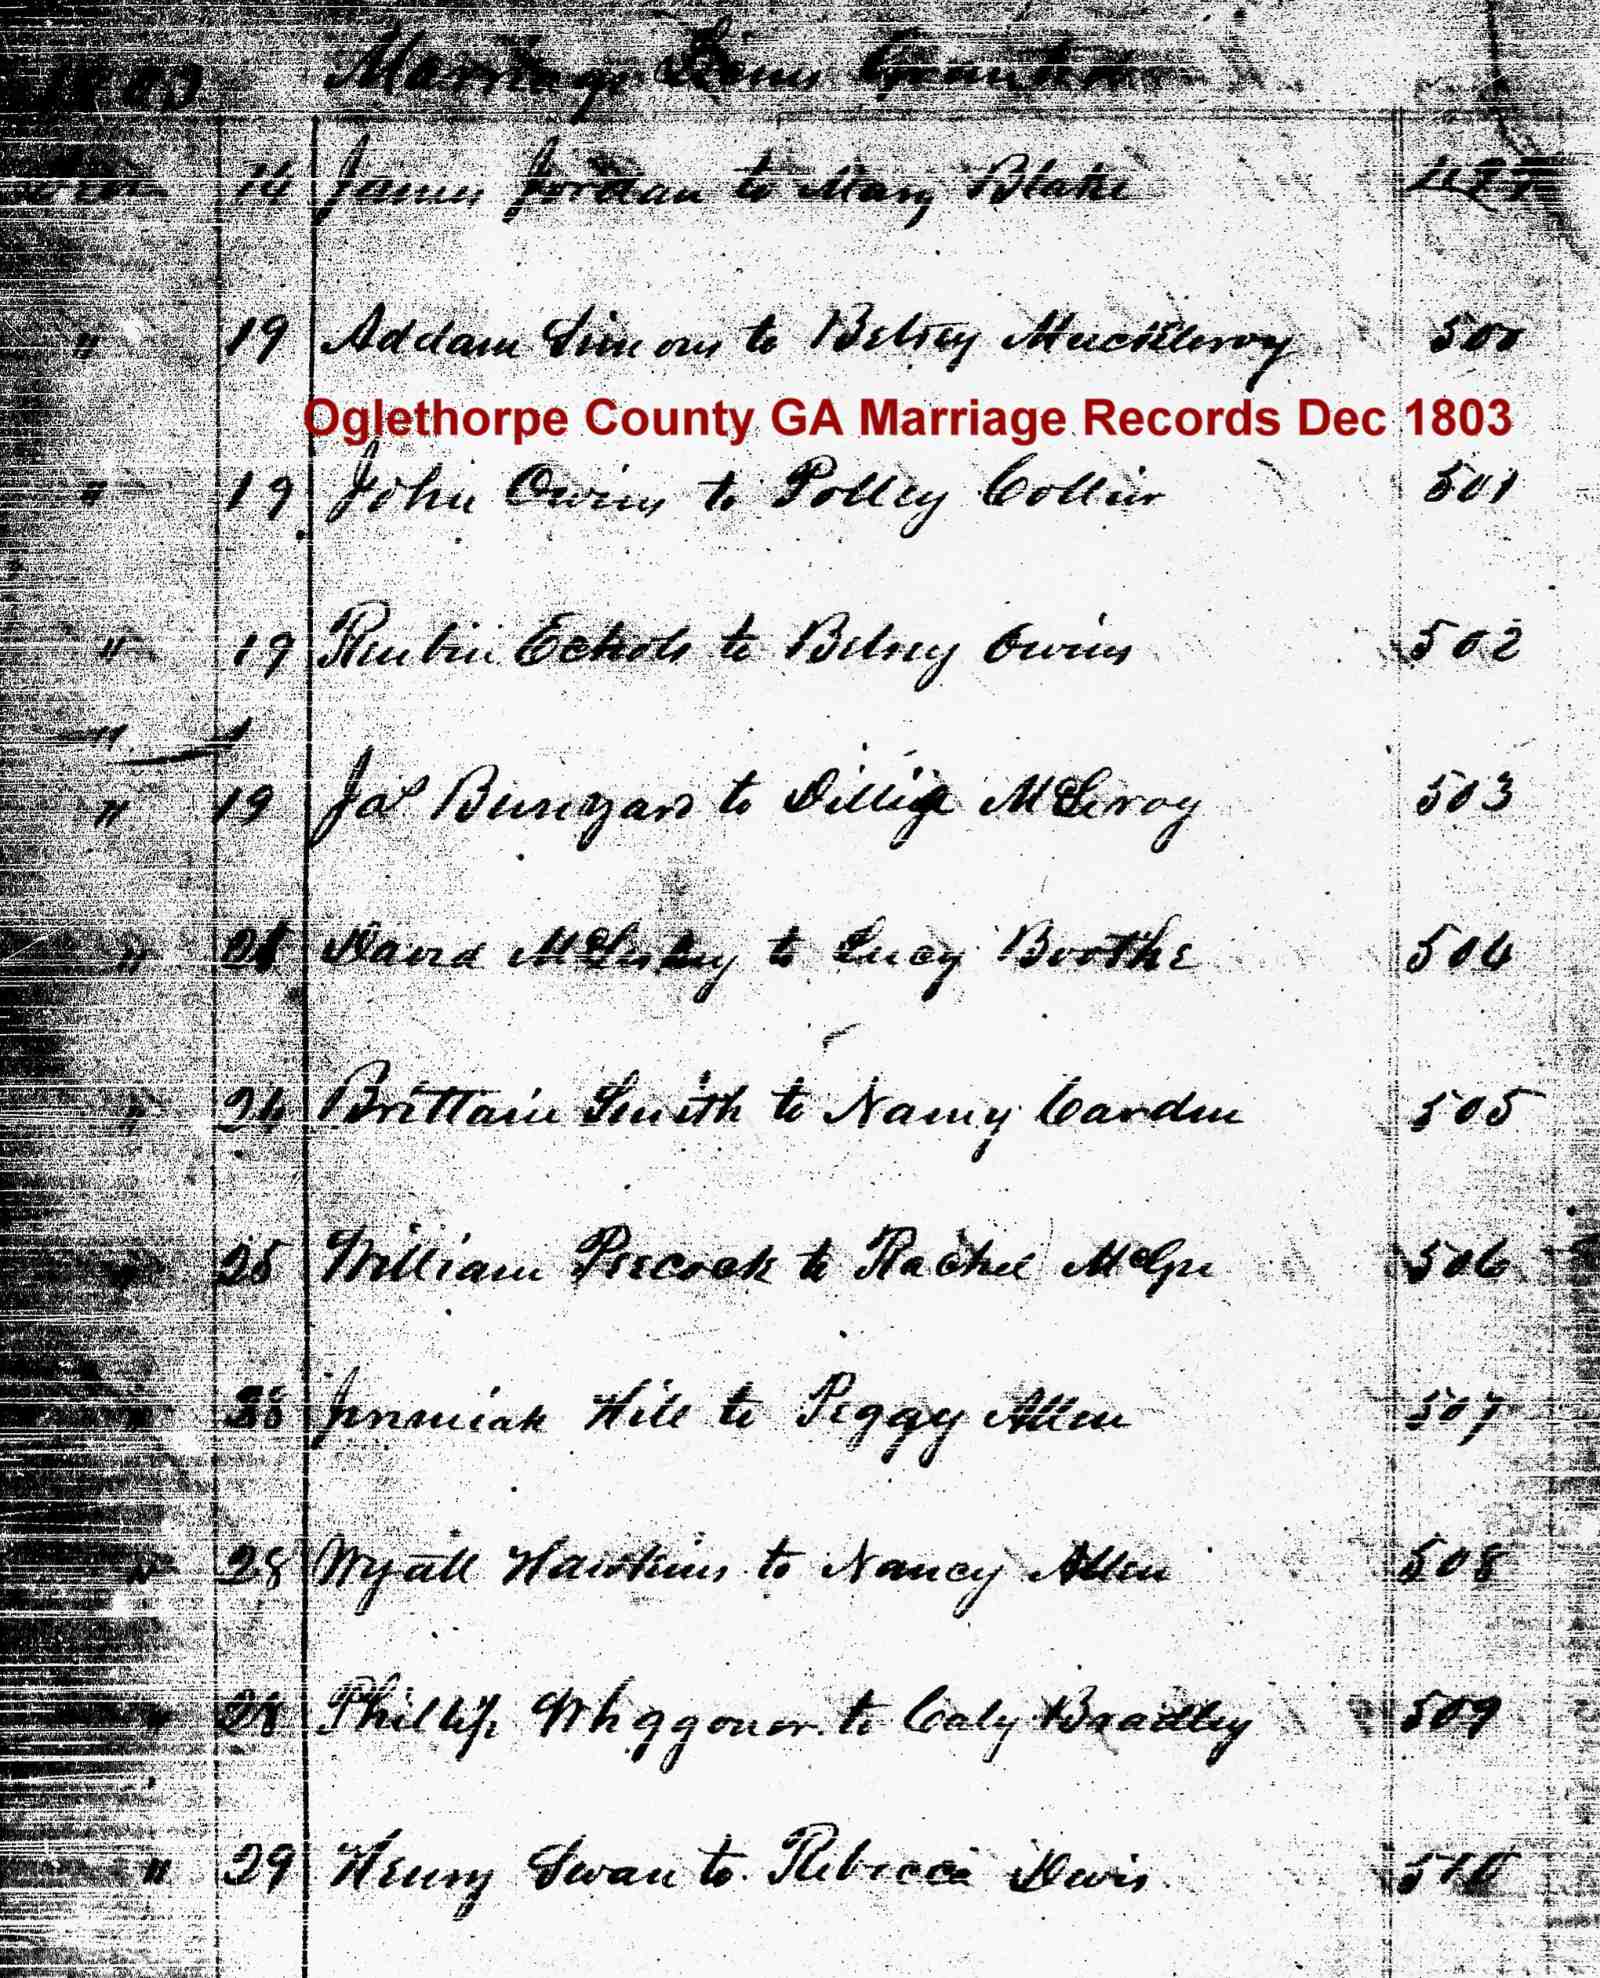 1803 Marriage Granted
14 James Jordan to Mary Blake
" 19 Addam Simons to Betsey Muckleroy 500
Oglethorpe County GA Marriage Records Dec 1803
" 19 John Owins to Polley Collier 501
" 19 Reubin Echols to Betsey Owins 502
"
" 19 Jas Bunyard to McLeroy 503
" David to Lucy Boothe 504
" 24 Brittain Smith to Nancy Carden 505
" 25 William Peecock to Rachel McGee 506
" 28 Jeremiah Hill to Peggy Allen 507
" 28 Wyatt Hawkins to Nancy Allen 508
" 28 Phillip Whggonor to Caly Bradley 509
" 29 Henry Swan to Rebecca Davis 510